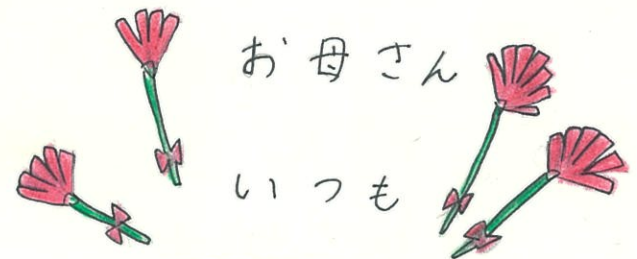 お母さん
いつも